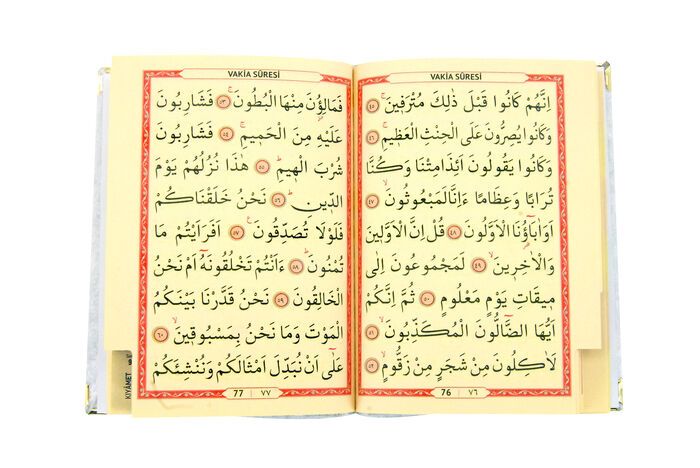 VAKİA SÛRESİ
اِنَّهُمْ كَانُوا قَبْلَ ذٰلِكَ مُتْرَفٖينَۚ ﴿٤٥﴾
وَكَانُوا يُصِرُّونَ عَلَى الْحِنْثِ الْعَظٖيمِۚ ﴿٤٦﴾
وَكَانُوا يَقُولُونَ اَئِذَامِتْنَا وَكُنَّا
تُرَابًا وَعِظَامًا ءَاِنَّالَمَبْعُوثُونَۙ ﴿٤٧﴾
اَوَاٰبَٓاؤُنَا الْاَوَّلُونَ ﴿٤٨﴾ قُلْ اِنَّ الْاَوَّلٖينَ
وَالْاٰخِرٖينَۙ ﴿٤٩﴾ لَمَجْمُوعُونَ اِلٰى
مٖيقَاتِ يَوْمٍ مَعْلُومٍ ﴿٥٠﴾ ثُمَّ اِنَّكُمْ
اَيُّهَا الضَّٓالُّونَ الْمُكَذِّبُونَۙ ﴿٥١﴾
لَاٰكِلُونَ مِنْ شَجَرٍ مِنْ زَقُّومٍۙ ﴿٥٢﴾
76 ٧٦
VAKİA SÛRESİ
فَمَالِؤُنَ مِنْهَا الْبُطُونَۚ ﴿٥٣﴾ فَشَارِبُونَ
عَلَيْهِ مِنَ الْحَمٖيمِۚ ﴿٥٤﴾ فَشَارِبُونَ
شُرْبَ الْهٖيمِۜ ﴿٥٥﴾ هٰذَا نُزُلُهُمْ يَوْمَ
الدّٖينِۜ ﴿٥٦﴾ نَحْنُ خَلَقْنَاكُمْ
فَلَوْلَا تُصَدِّقُونَ ﴿٥٧﴾ اَفَرَاَيْتُمْ مَا
تُمْنُونَۜ ﴿٥٨﴾ ءَاَنْتُمْ تَخْلُقُونَهُٓ اَمْ نَحْنُ
الْخَالِقُونَ ﴿٥٩﴾ نَحْنُ قَدَّرْنَا بَيْنَكُمُ
الْمَوْتَ وَمَا نَحْنُ بِمَسْبُوقٖينَۙ ﴿٦٠﴾
عَلٰٓى اَنْ نُبَدِّلَ اَمْثَالَكُمْ وَنُنْشِئَكُمْ
77 ٧٧
KIYÂMET